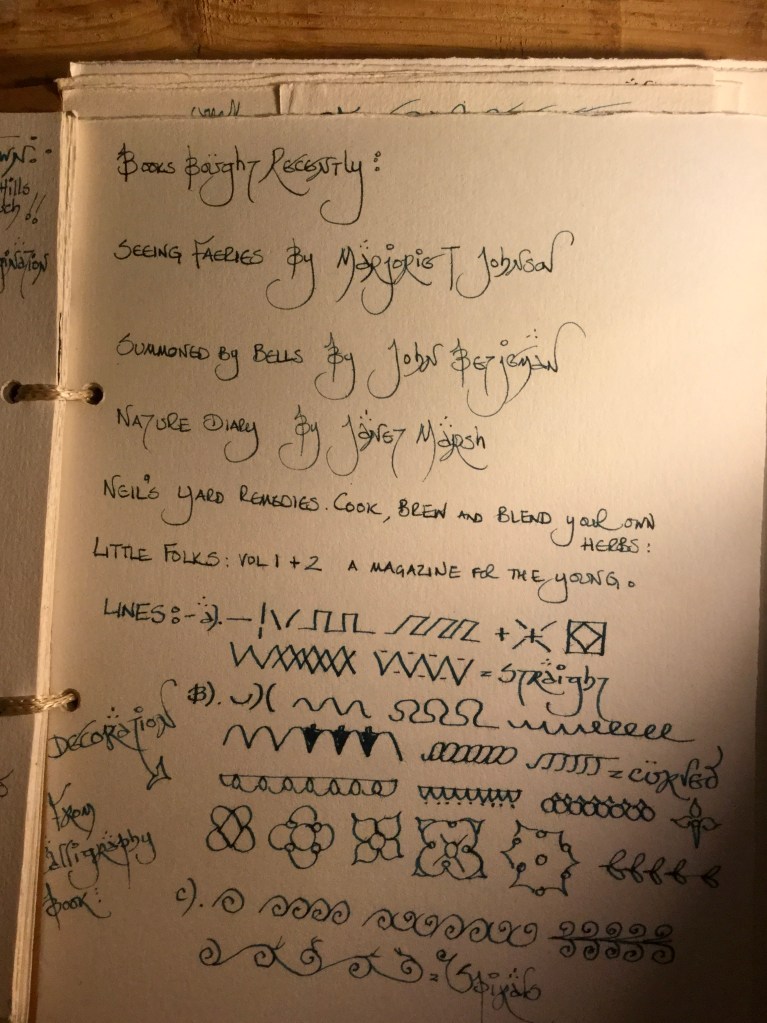 WN:
Hills
!!
GINATION
BOOKS BOUGHT RECENTLY:
SEEING FAERIES BY MARJORIE T JOHNSON
SUMMONED BY BELLS BY JOHN BETJEMAN
NATURE DIARY BY JANET MARSH
NEIL'S YARD REMEDIES. COOK, BREW AND BLEND YOUR OWN
HERBS:
LITTLE FOLKS: VOL 1 + 2 A MAGAZINE FOR THE YOUNG.
LINES:- a).
= STRAIGHT
B).
DECORATION
= CURVED
FROM
CALLIGRAPHY
BOOK:
C).
= SPIRALS